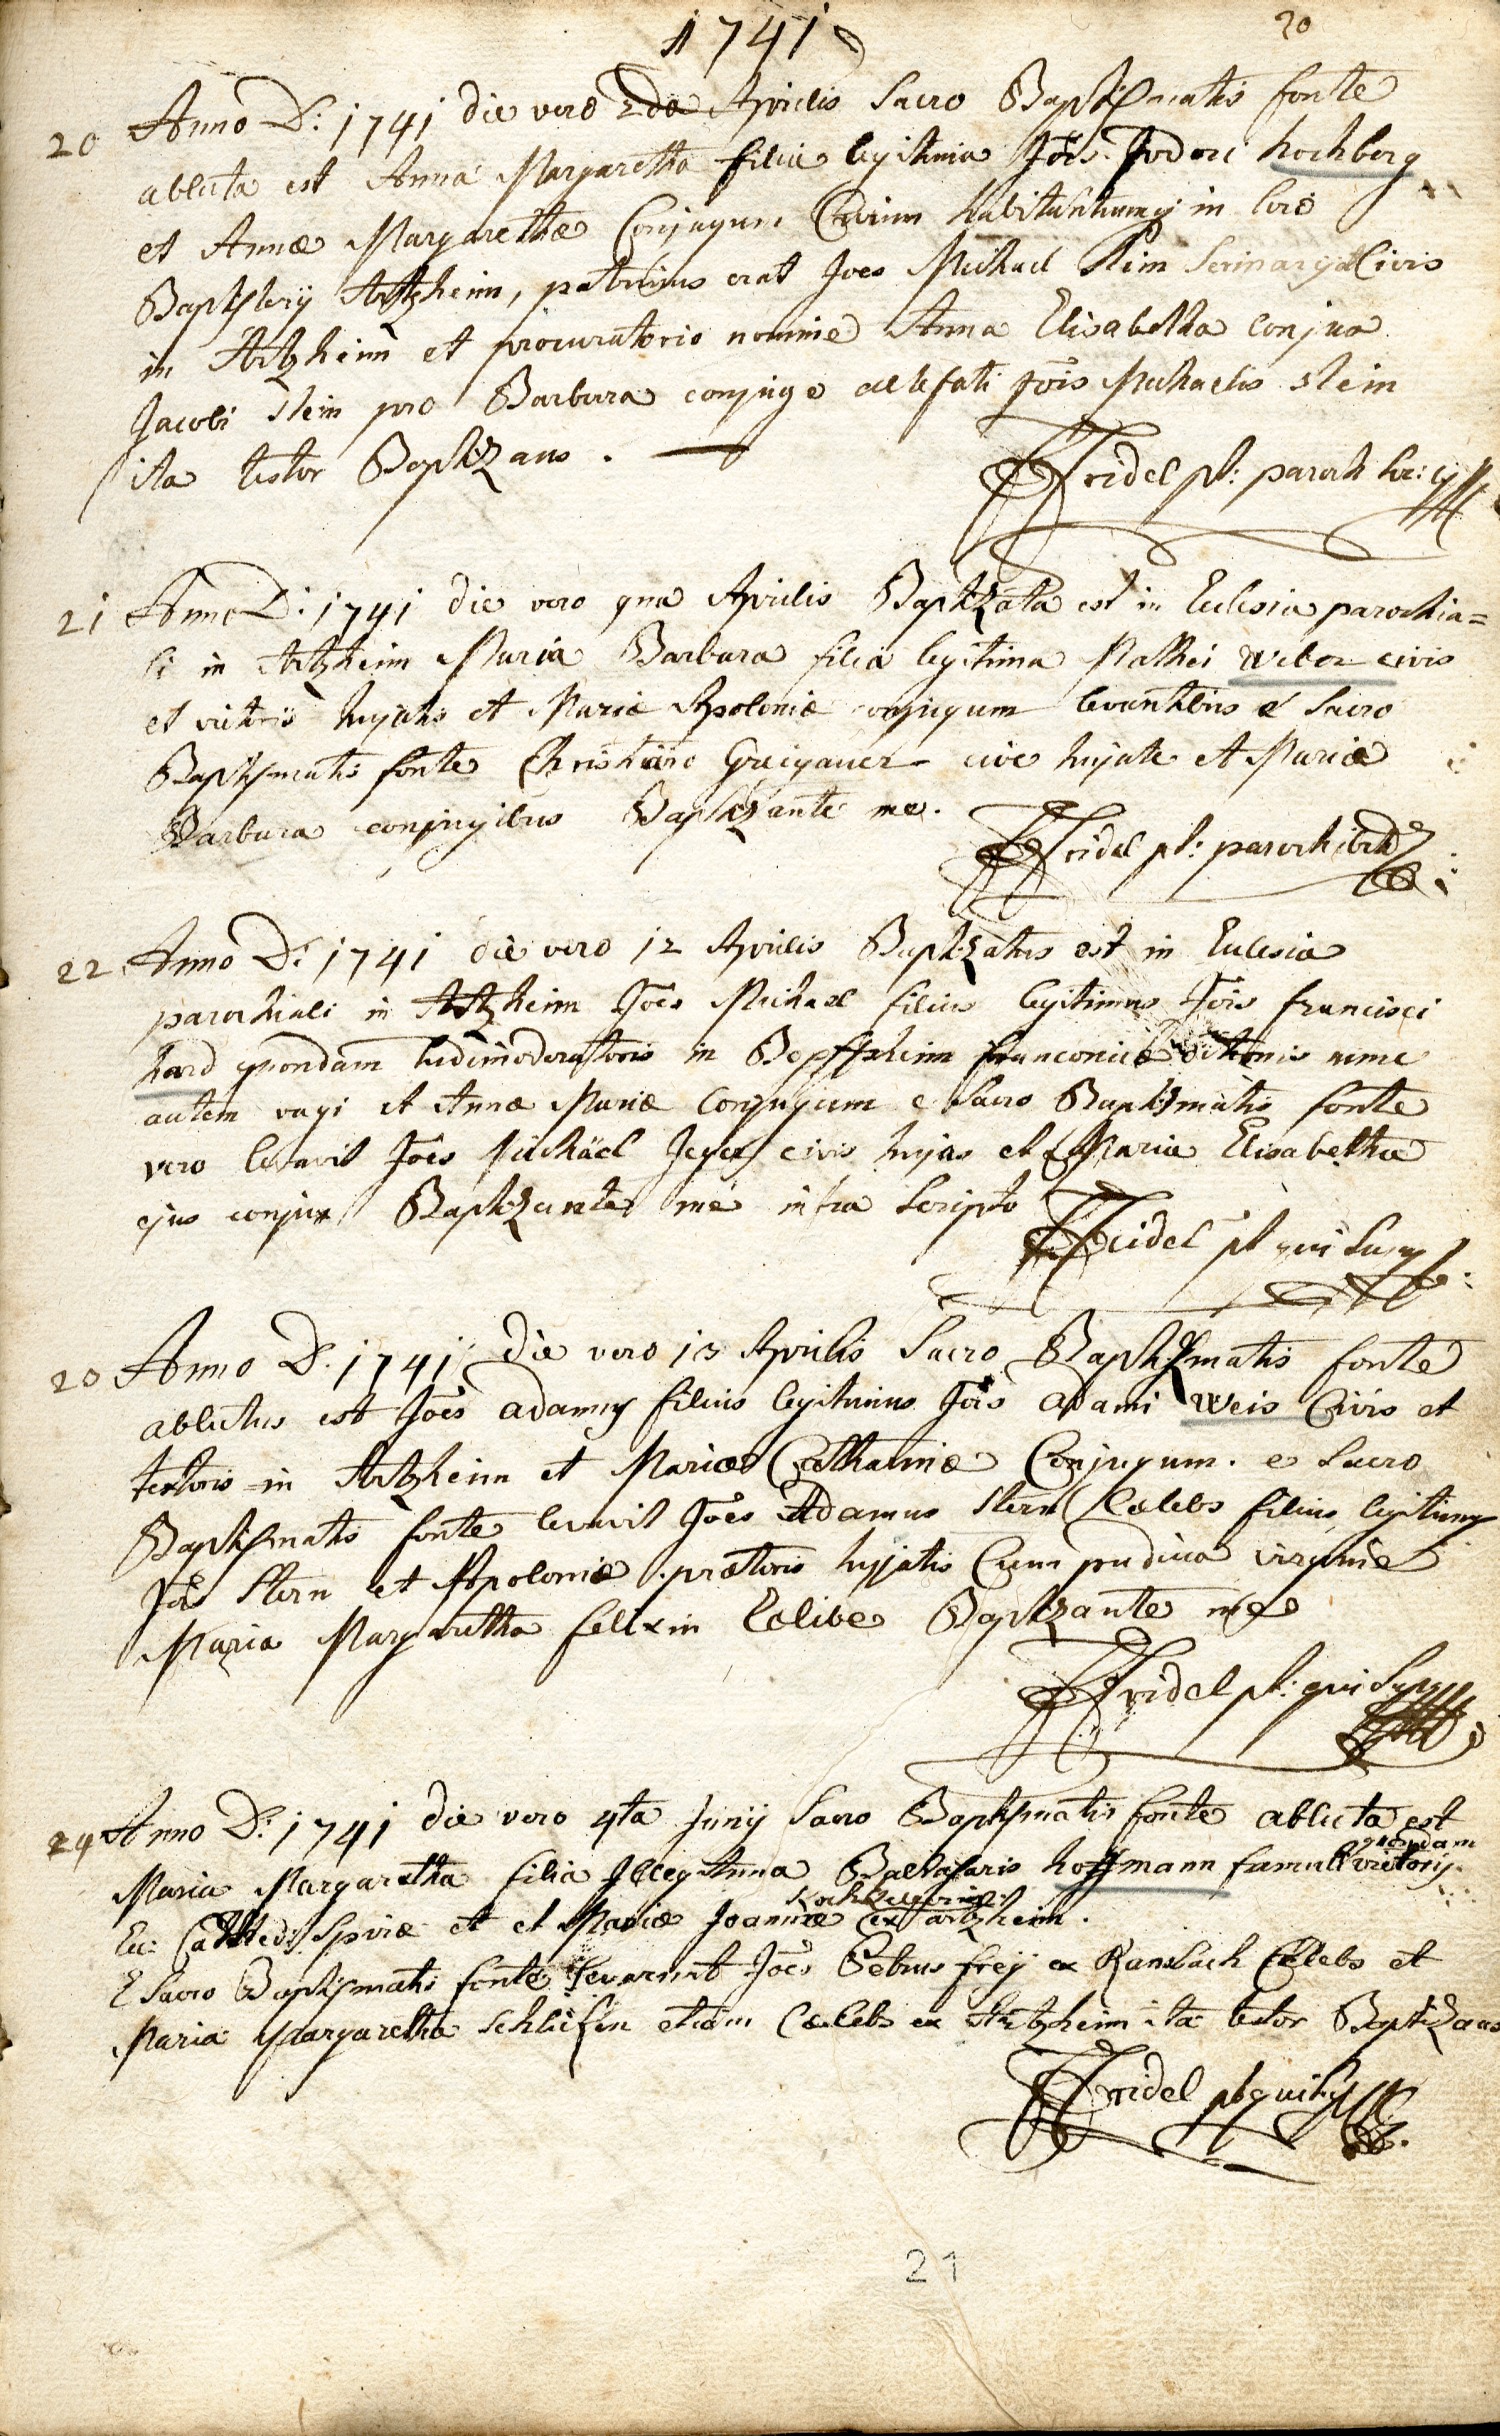 1741
20
20 Anno D: 1741 die vero 2da Aprilis Sacro Baptismatis fonte
abluta est Anna Margaretha filia legitima Jois Jodoci hochberg
et Annæ Margarethæ Conjugum Civium habitantium in loco
Baptistery Artzheim, patrinus erat Joes Michael Stein Civis
in Artzheim et procuratorio nomine Anna Elisabetha conjux
Jacobi Stein pro Barbara conjuge Jois Michaelis Stein
ita testor Baptizans.
Fridel pl: paroch
21 Anno D: 1741 die vero 9na Aprilis Baptizata est in Eclesia parochia=
li in Artzheim Maria Barbara filia legitima Mathei Weber civis
et hujatis et Mariæ Apoloniæ conjugum levantibus e Sacro
Baptismatis fonte cive hujate et Maria
Barbara conjugibus Baptizante me.
Fridel pl: paroch
22 Anno D: 1741 die vero 12 Aprilis Baptizatus est in Eclesia
parochiali in Artzheim Joes Michael filius legitimus Jois francisci
hard quondam ludimoderatoris in franconicæ ditionis nunc
autem vagi et Annæ Mariæ Conjugum e Sacro Baptismatis fonte
vero levavit Joes Michäel civis hujas et Maria Elisabetha
ejus conjux Baptizante me infra Scripto
Fridel pl qui Supra
23 Anno D. 1741 die vero 13 Aprilis Sacro Baptizmatis fonte
ablutus est Joes adamus filius legitimus Jois adami Weis Civis et
textoris in Artzheim et Mariæ Catharinæ Conjugum. e Sacro
Baptismatis fonte levavit Joes Adamus Stern Cælebs filius legitimus
Jois Stern et Apoloniæ prætoris hujatis Cum pudica virgine
Maria Margaretha felixin Cælibe Baptizante me
Fridel pl: qui Supra
24 Anno D: 1741 die vero 4ta Junij Sacro Baptismatis fonte abluta est
quondam
Maria Margaretha filia Illegitima Balthasaris hoffmann famuli
Spiræ et et Mariæ Joannæ ex artzheim.
E Sacro Baptismatis fonte levarunt Joes Petrus frey ex Ransbach Cælebs et
Maria Margaretha etiam Cælebs ex Artzheim ita testor Baptizans
Fridel pl qui Supra
21